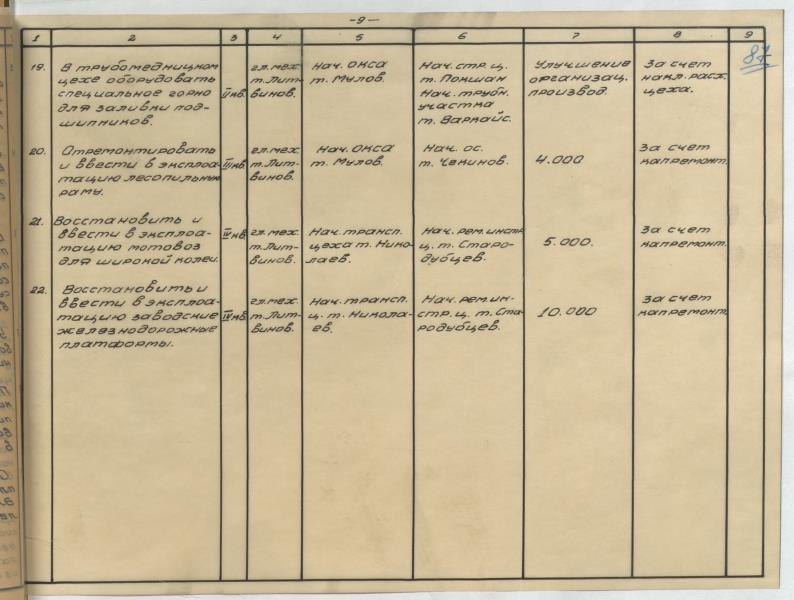 -9-
1 2 3 4 5 6 7 8 9
87
19. В трубомедницком
цехе оборудовать
специальное горно
для заливки под-
шипников.
II кв.
гл. мех.
т. Лит-
винов.
Нач. ОКСа
т. Мулов.
Нач. стр. ц.
т. Покшан
Нач. трубн.
участка
т. Варкайс.
Улучшение
организац.
производ.
За счет
накл. расх.
цеха.
20. Отремонтировать
и ввести в эксплоа-
тацию лесопильную
раму.
III кв.
гл. мех.
т. Лит-
винов.
Нач. ОКСа
т. Мулов.
Нач. ос.
т. Чекинов.
4.000
За счет
капремонт.
21. Восстановить и
ввести в эксплоа-
тацию мотовоз
для широкой колеи.
IV кв.
гл. мех.
т. Лит-
винов.
Нач. трансп.
цеха т. Нико-
лаев.
Нач. рем. инстр
ц. т. Старо-
дубцев.
5.000.
За счет
капремонт.
22. Восстановить и
ввести в эксплоа-
тацию заводские
железнодорожные
платформы.
IV кв.
гл. мех.
т. Лит-
винов.
Нач. трансп.
ц. т. Никола-
ев.
Нач. рем. ин-
стр. ц. т. Ста-
родубцев.
10.000
За счет
капремонт.